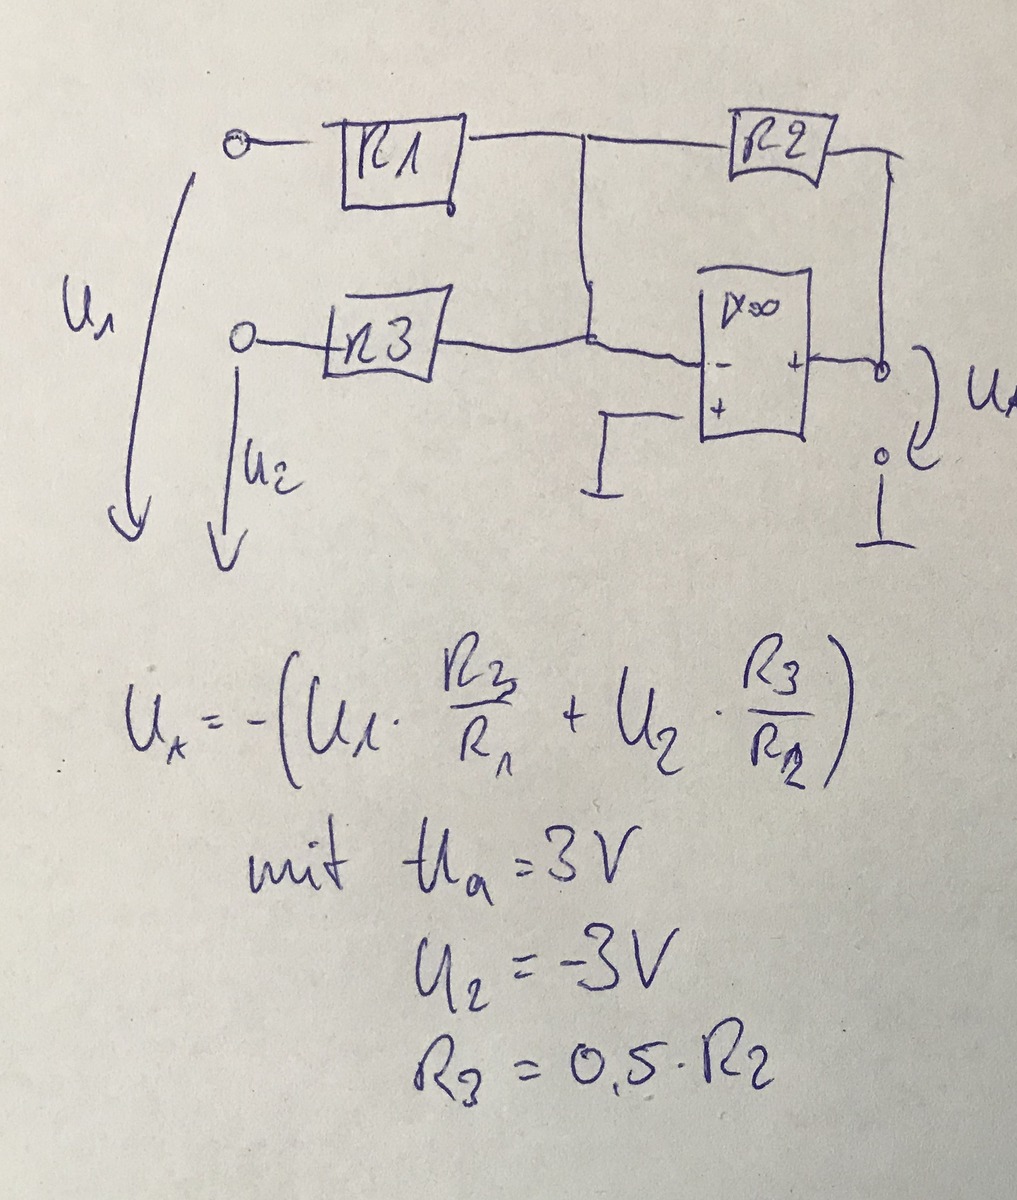 R1
R2
U1
R3
▷∞
-
+
+
U2
UA
UA = -(U1 · R3/R1 + U2 · R3/R2)
mit Ua = 3V
U2 = -3V
R3 = 0,5 · R2